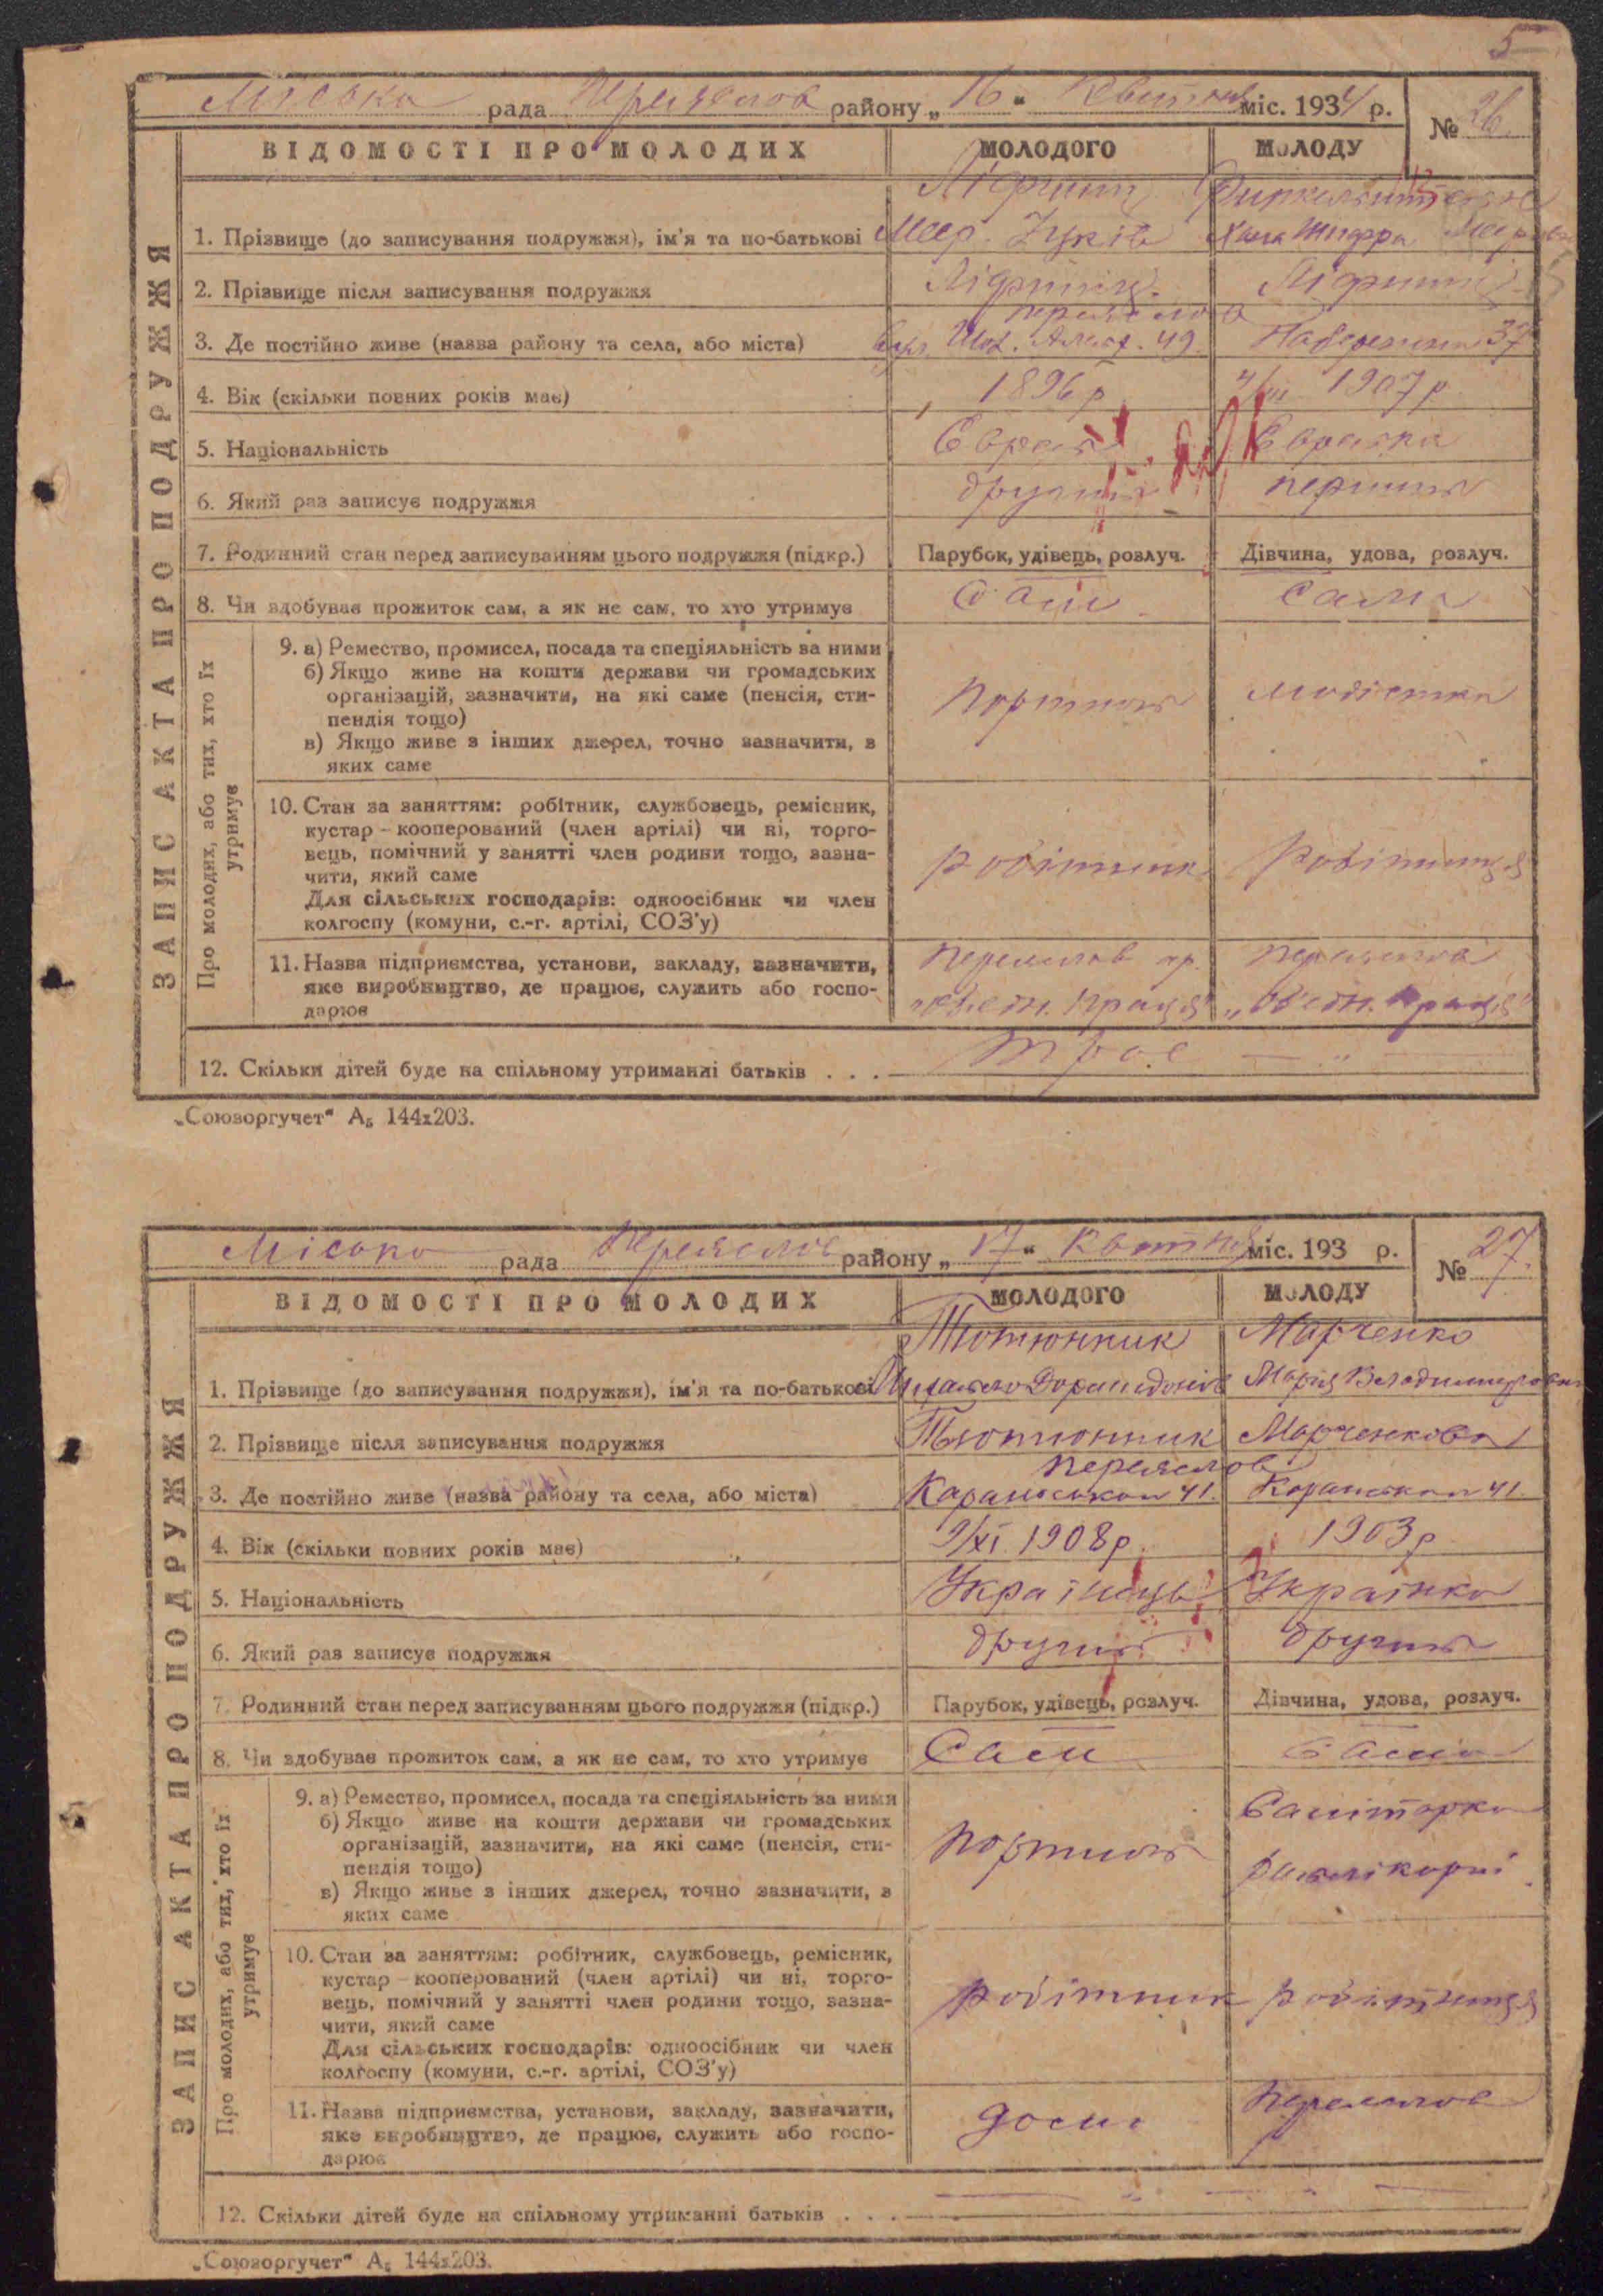 5
Міська рада Переяслов району „16“ Квітня міс. 1934 р.
№ 26
ВІДОМОСТІ ПРО МОЛОДИХ МОЛОДОГО МОЛОДУ
ЗАПИС АКТА ПРО ПОДРУЖЖЯ
1. Прізвище (до записування подружжя), ім'я та по-батькові Меер
2. Прізвище після записування подружжя
Переяслов
3. Де постійно живе (назва району та села, або міста) 49 37
4. Вік (скільки повних років має) 1896 р 1907 р
5. Національність Єврей Єврейка
6. Який раз записує подружжя другий перший
7. Родинний стан перед записуванням цього подружжя (підкр.) Парубок, удівець, розлуч. Дівчина, удова, розлуч.
8. Чи здобуває прожиток сам, а як не сам, то хто утримує Сам Сама
Про молодих, або тих, хто їх утримує
9. а) Ремество, промисел, посада та спеціяльність за ними
б) Якщо живе на кошти держави чи громадських
організацій, зазначити, на які саме (пенсія, сти-
пендія тощо)
в) Якщо живе з інших джерел, точно зазначити, в
яких саме
Портной модістка
10. Стан за заняттям: робітник, службовець, ремісник,
кустар – кооперований (член артілі) чи ні, торго-
вець, помічний у занятті член родини тощо, зазна-
чити, який саме
Для сільських господарів: одноосібник чи член
колгоспу (комуни, с.-г. артілі, СОЗ'у)
робітник робітниця
11. Назва підприємства, установи, закладу, зазначити,
яке виробництво, де працює, служить або госпо-
дарює
Переяслов Переяслов
праця" праця"
12. Скільки дітей буде на спільному утриманні батьків . . . Троє — „ —
„Союзоргучет“ А₅ 144х203.
Міська рада Переяслов району „17“ Квітня міс. 193 р.
№ 27.
ВІДОМОСТІ ПРО МОЛОДИХ МОЛОДОГО МОЛОДУ
ЗАПИС АКТА ПРО ПОДРУЖЖЯ
Тютюнник Марченко
1. Прізвище (до записування подружжя), ім'я та по-батькові Михайло Марія Владимировна
2. Прізвище після записування подружжя Тютюнник Марченкова
Переяслов
3. Де постійно живе (назва району та села, або міста) Каранськая 41. Каранская 41.
4. Вік (скільки повних років має) 9/XI 1908 р. 1903 р
5. Національність Українець Українка
6. Який раз записує подружжя другий другий
7. Родинний стан перед записуванням цього подружжя (підкр.) Парубок, удівець, розлуч. Дівчина, удова, розлуч.
8. Чи здобуває прожиток сам, а як не сам, то хто утримує Сам Сама
Про молодих, або тих, хто їх утримує
9. а) Ремество, промисел, посада та спеціяльність за ними
б) Якщо живе на кошти держави чи громадських
організацій, зазначити, на які саме (пенсія, сти-
пендія тощо)
в) Якщо живе з інших джерел, точно зазначити, в
яких саме
Портной Санітарка
10. Стан за заняттям: робітник, службовець, ремісник,
кустар – кооперований (член артілі) чи ні, торго-
вець, помічний у занятті член родини тощо, зазна-
чити, який саме
Для сільських господарів: одноосібник чи член
колгоспу (комуни, с.-г. артілі, СОЗ'у)
робітник робітниця
11. Назва підприємства, установи, закладу, зазначити,
яке виробництво, де працює, служить або госпо-
дарює
дома Переяслов
12. Скільки дітей буде на спільному утриманні батьків . . . — „ — „ —
„Союзоргучет“ А₅ 144х203.